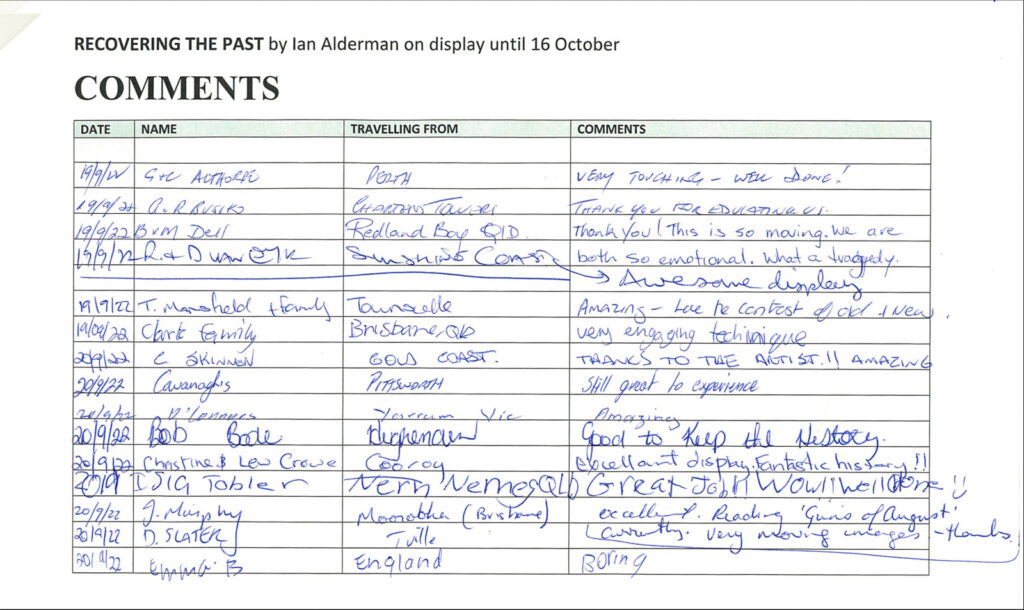 RECOVERING THE PAST by Ian Alderman on display until 16 October
COMMENTS
DATE NAME TRAVELLING FROM COMMENTS
19/9/22 G+C ALTHORPE PERTH VERY TOUCHING - WELL DONE!
19/9/22 CHARTERS TOWERS THANK YOU FOR EDUCATING US.
19/9/22 B+M Dell Redland Bay QLD. Thank you! This is so moving. We are
19/9/22 R+D VAN Sunshine Coast both so emotional. What a tragedy.
Awesome display
19/9/22 T. Mansfield + family Townsville Amazing - of old + New.
19/09/22 Clark Family Brisbane, QLD very engaging technique
20/9/22 C SKINNER GOLD COAST. THANKS TO THE ARTIST!! AMAZING
20/9/22 Cavanaghs PITTSWORTH Still great to experience
20/9/22 O'Connors Yarram Vic Amazing
20/9/22 Bob Bode Hughenden Good to Keep the History.
20/9/22 Christine & Lew Crowe Cooroy excellant display. Fantastic history!!
20/9 Tobler QLD Great Job!! Wow!! Well Done!!
20/9/22 J. Murphy (Brisbane) excellent. Reading 'Guns of August'
20/9/22 D. SLATER T'ville currently. Very moving images - thanks.
20/9/22 Emma. B England BORing